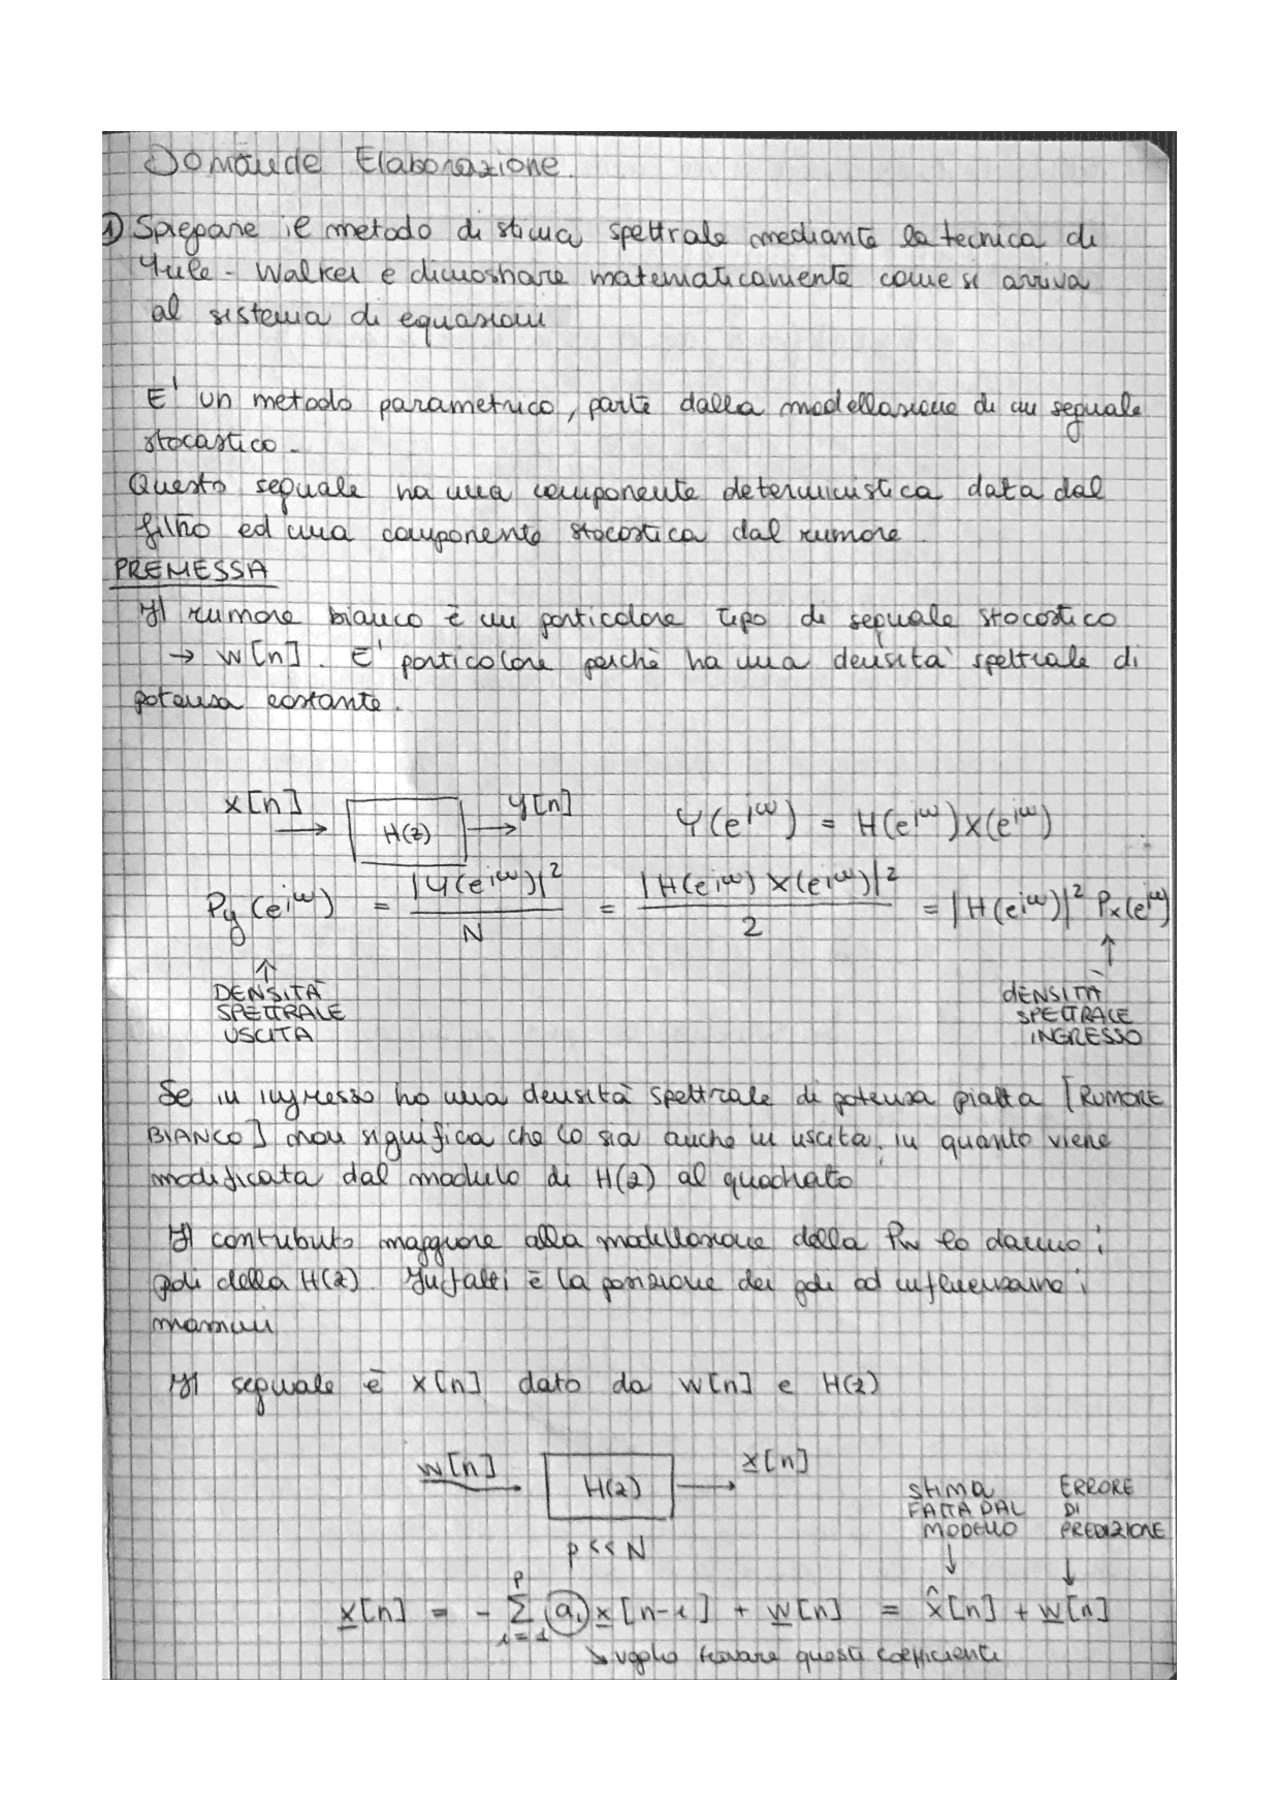 Domande Elaborazione.
1) Spiegare il metodo di stima spettrale mediante la tecnica di
Yule - Walker e dimostrare matematicamente come si arriva
al sistema di equazioni
E' un metodo parametrico, parte dalla modellazione di un segnale
stocastico.
Questo segnale ha una componente deterministica data dal
filtro ed una componente stocastica dal rumore.
PREMESSA
Il rumore bianco è un particolare tipo di segnale stocastico
→ w[n]. E' particolare perchè ha una densità spettrale di
potenza costante.
x[n] → H(z) → y[n] Y(e^{jω}) = H(e^{jω})X(e^{jω})
Py(e^{jω}) = |Y(e^{jω})|² / N = |H(e^{jω}) X(e^{jω})|² / 2 = |H(e^{jω})|² Px(e^{jω})
↑ DENSITÀ SPETTRALE USCITA
↑ DENSITÀ SPETTRALE INGRESSO
Se in ingresso ho una densità spettrale di potenza piatta [RUMORE
BIANCO] non significa che lo sia anche in uscita, in quanto viene
modificata dal modulo di H(z) al quadrato
Il contributo maggiore alla modellazione della Pw lo danno i
poli della H(z). Infatti è la posizione dei poli ad influenzarne i
massimi
Il segnale è x[n] dato da w[n] e H(z)
w[n] → H(z) → x[n]
p << N
STIMA FATTA DAL MODELLO ↓
ERRORE DI PREDIZIONE ↓
x[n] = - Σ_{i=1}^{p} a_i x[n-i] + w[n] = x̂[n] + w[n]
↘ voglio trovare questi coefficienti